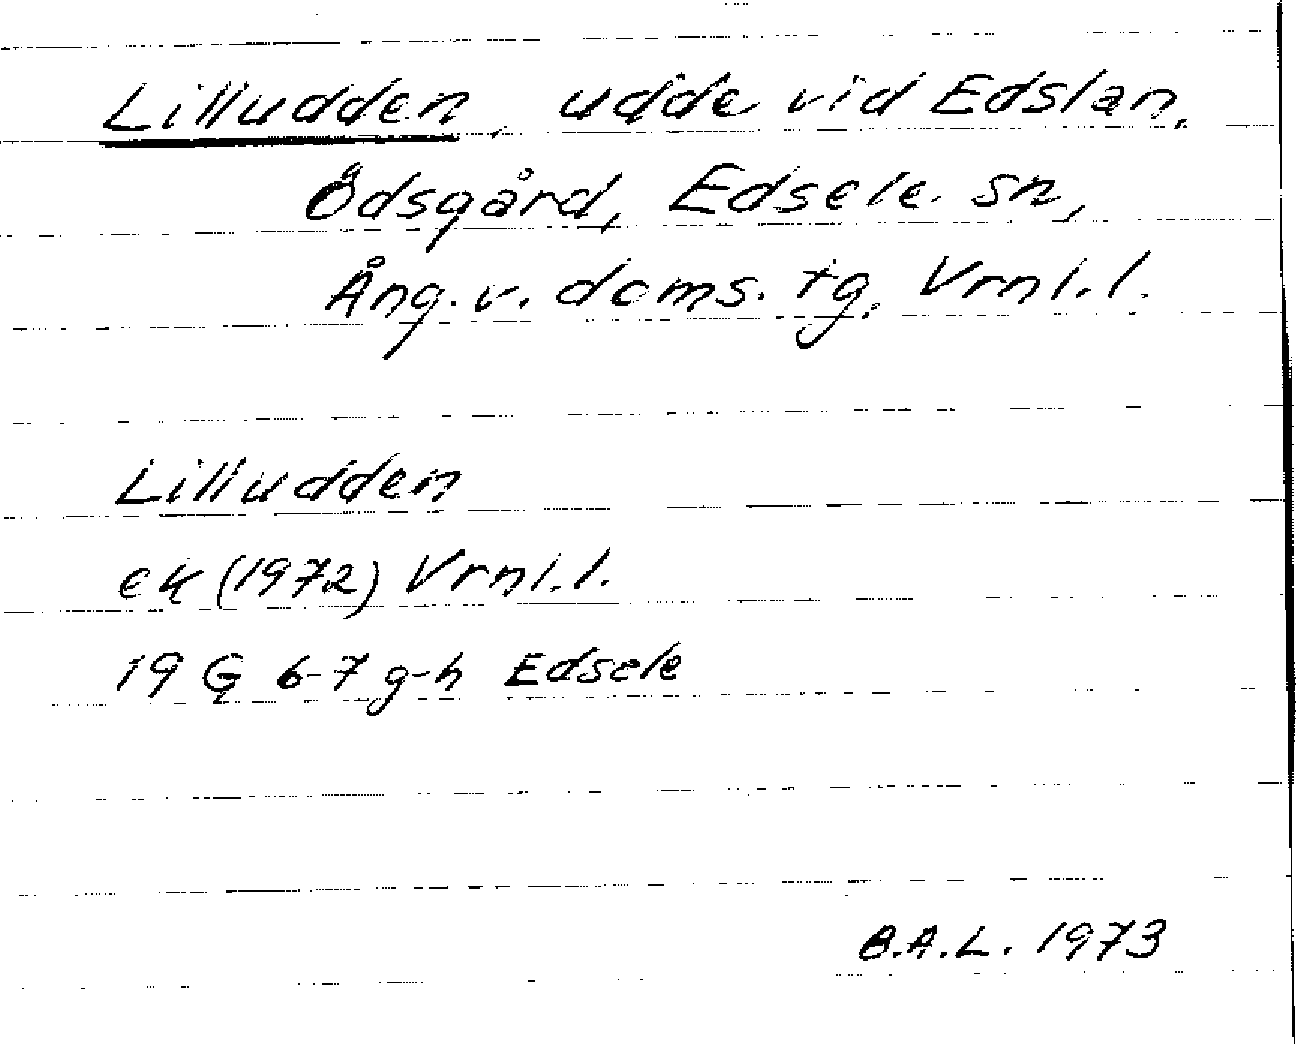 Lilludden, udde vid Edslan,
Ödsgård, Edsele sn,
Ång. v. doms. tg, Vrnl. l.
Lilludden
ek (1972) Vrnl. l.
19 G 6-7 g-h Edsele
B.A.L. 1973